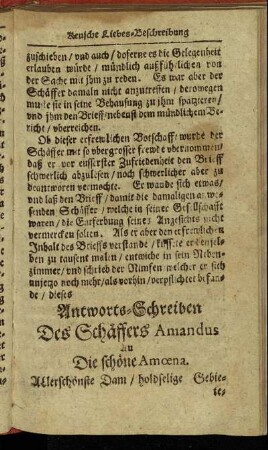 Keusche Liebes-Beschreibung
zuschieben/ vnd auch/ doferne es die Gelegenheit
erlauben würde/ mündlich außführlichen von
der Sache mit ihm zu reden. Es war aber der
Schäffer damaln nicht anzutreffen/ derowegen
muste sie in seine Behausung zu ihm spatzieren/
vnd ihm den Brieff/ nebenst dem mündlichem Be-
richt/ vberreichen.
Ob dieser erfrewlichen Botschafft wurde der
Schäffer mit so vbergrosser Frewde vbernommen/
daß er vor eusserster Zufriedenheit den Brieff
schwerlich abzulesen/ noch schwerlicher aber zu
beantworten vermochte. Er wande sich etwas/
vnd laß den Brieff/ damit die damaligen anwe-
senden Schäffer/ welche in seiner Gesellschafft
waren/ die Entferbung seines Angesichts nicht
vermercken solten. Als er aber den erfrewlichen
Inhalt des Brieffs verstande/ küssete er denselben
zu tausent malen/ entwiche in sein Neben-
zimmer/ vnd schrieb der Nimfen welcher er sich
unjetzo noch mehr/ als vorhin/ verpflichtet befan-
de/ dieses
Antworts-Schreiben
Des Schäffers Amandus
an
Die schöne Amœna.
Allerschönste Dam/ holdselige Gebie-
te-